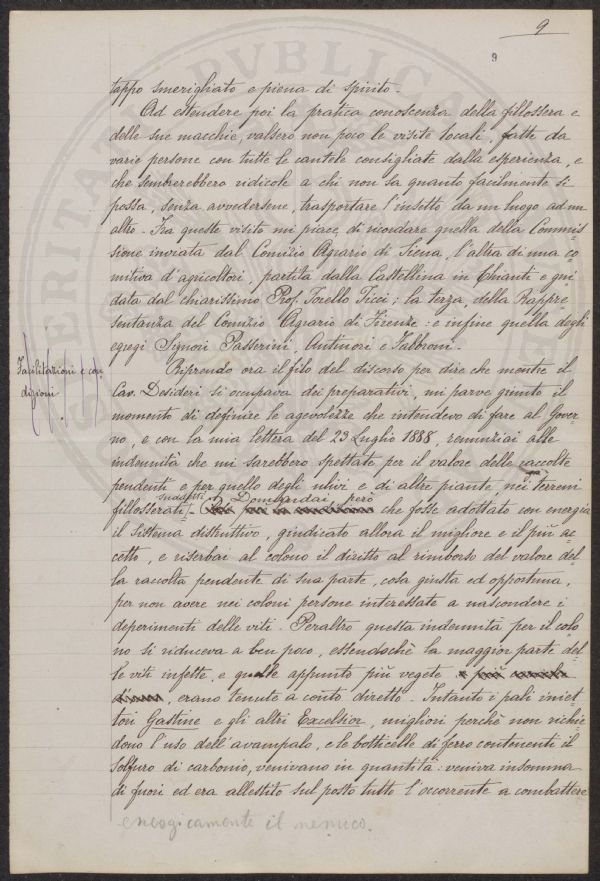 9
9
tappo smerigliato e piena di spirito.
Ad estendere poi la pratica conoscenza della fillossera e
delle sue macchie, valsero non poco le visite locali, fatte da
varie persone con tutte le cautele consigliate dalla esperienza, e
che sembrerebbero ridicole a chi non sa quanto facilmente si
possa, senza avvedersene, trasportare l'insetto da un luogo ad un
altro. Tra queste visite mi piace, di ricordare quella della Commis=
sione inviata dal Comizio Agrario di Siena, l'altra di una co
mitiva d'agricoltori, partita dalla Castellina in Chianti e gui
data dal chiarissimo Prof. Torello Ticci; la terza, della Rappre
sentanza del Comizio Agrario di Firenze: e infine quella degli
egregi Signori Passerini, Antinori e Fabbroni.
Facilitazioni e con
dizioni.
Riprendo ora il filo del discorso per dire che mentre il
Cav. Desideri si occupava dei preparativi, mi parve giunto il
momento di definire le agevolezze che intendevo di fare al Gover
no, e con la mia lettera del 23 Luglio 1888, renunziai alle
indennità che mi sarebbero spettate per il valore delle raccolte
pendenti e per quello degli ulivi e di altre piante, nei terreni
suddetti Domandai, però
fillosserati. che fosse adottato con energia
il sistema distruttivo, giudicato allora il migliore e il più ac=
cetto, e riserbai al colono il diritto al rimborso del valore del=
la raccolta pendente di sua parte, cosa giusta ed opportuna,
per non avere nei coloni persone interessate a nascondere i
deperimenti delle viti. Peraltro questa indennità per il colo
no si riduceva a ben poco, essendochè la maggior parte del
le viti infette, e quelle appunto più vegete
, erano tenute a conto diretto. Intanto i pali iniet=
tori Gastine e gli altri Excelsior, migliori perchè non richie
dono l'uso dell'avampalo, e le botticelle di ferro contenenti il
solfuro di carbonio, venivano in quantità: veniva insomma
di fuori ed era allestito sul posto tutto l'occorrente a combattere
energicamente il nemico.